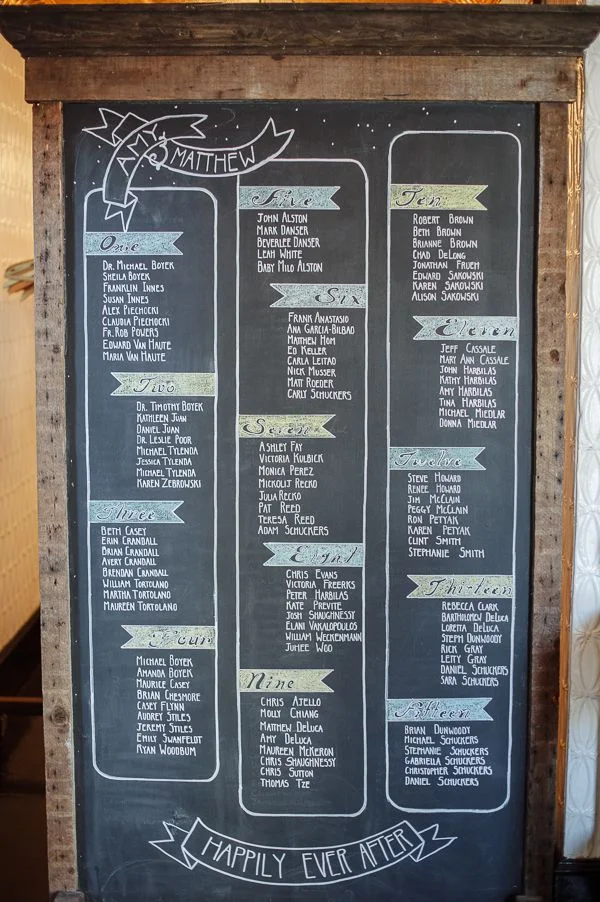 AMY & MATTHEW
One
Dr. Michael Boyek
Sheila Boyek
Franklin Innes
Susan Innes
Alex Piechocki
Claudia Piechocki
Fr. Rob Powers
Edward Van Haute
Maria Van Haute
Two
Dr. Timothy Boyek
Kathleen Juan
Daniel Juan
Dr. Leslie Poor
Michael Tylenda
Jessica Tylenda
Michael Tylenda
Karen Zebrowski
Three
Beth Casey
Erin Crandall
Brian Crandall
Avery Crandall
Brendan Crandall
William Tortolano
Martha Tortolano
Maureen Tortolano
Four
Michael Boyek
Amanda Boyek
Maurice Casey
Brian Chesmore
Casey Flynn
Audrey Stiles
Jeremy Stiles
Emily Swanfeldt
Ryan Woodbum
Five
John Alston
Mark Danser
Beverlee Danser
Leah White
Baby Milo Alston
Six
Frank Anastasio
Ana Garcia-Bilbao
Matthew Hom
Ed Keller
Carla Leitao
Nick Musser
Matt Roeder
Carly Schuckers
Seven
Ashley Fay
Victoria Kulbick
Monica Perez
Mickolit Recko
Julia Recko
Pat Reed
Teresa Reed
Adam Schuckers
Eight
Chris Evans
Victoria Freerks
Peter Harbilas
Kate Previte
Josh Shaughnessy
Elani Vakalopoulos
William Weckenmann
Juhee Woo
Nine
Chris Ajello
Molly Chiang
Matthew DeLuca
Amy DeLuca
Maureen McKeron
Chris Shaughnessy
Chris Sutton
Thomas Tze
Ten
Robert Brown
Beth Brown
Brianne Brown
Chad DeLong
Jonathan Frueh
Edward Sakowski
Karen Sakowski
Alison Sakowski
Eleven
Jeff Cassale
Mary Ann Cassale
John Harbilas
Kathy Harbilas
Amy Harbilas
Tina Harbilas
Michael Miedlar
Donna Miedlar
Twelve
Steve Howard
Renee Howard
Jim McClain
Peggy McClain
Ron Petyak
Karen Petyak
Clint Smith
Stephanie Smith
Thirteen
Rebecca Clark
Bartholomew DeLuca
Loretta DeLuca
Steph Dunwoody
Rick Gray
Letty Gray
Daniel Schuckers
Sara Schuckers
Fifteen
Brian Dunwoody
Michael Schuckers
Stephanie Schuckers
Gabriella Schuckers
Christopher Schuckers
Daniel Schuckers
HAPPILY EVER AFTER